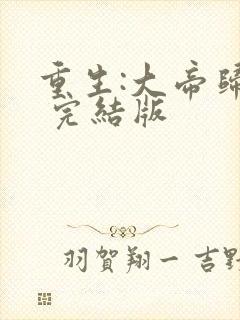 重生:大帝歸
完結版
羽賀翔一 吉野